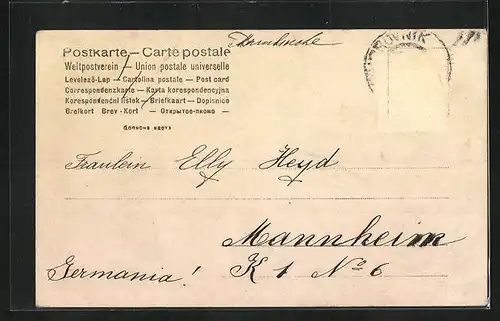 Drucksache
ROVNIK
Postkarte — Carte postale
Weltpostverein — Union postale universelle
Levelező-Lap — Cartolina postale — Post card
Correspondenzkarte — Karta korespondencyjna
Korespondenční lístek — Briefkaart — Dopisnica
Brefkort Brev-Kort — Открытое письмо —
Дописна карта
Fräulein Elly Heyd
Mannheim
Germania! K 1 No 6